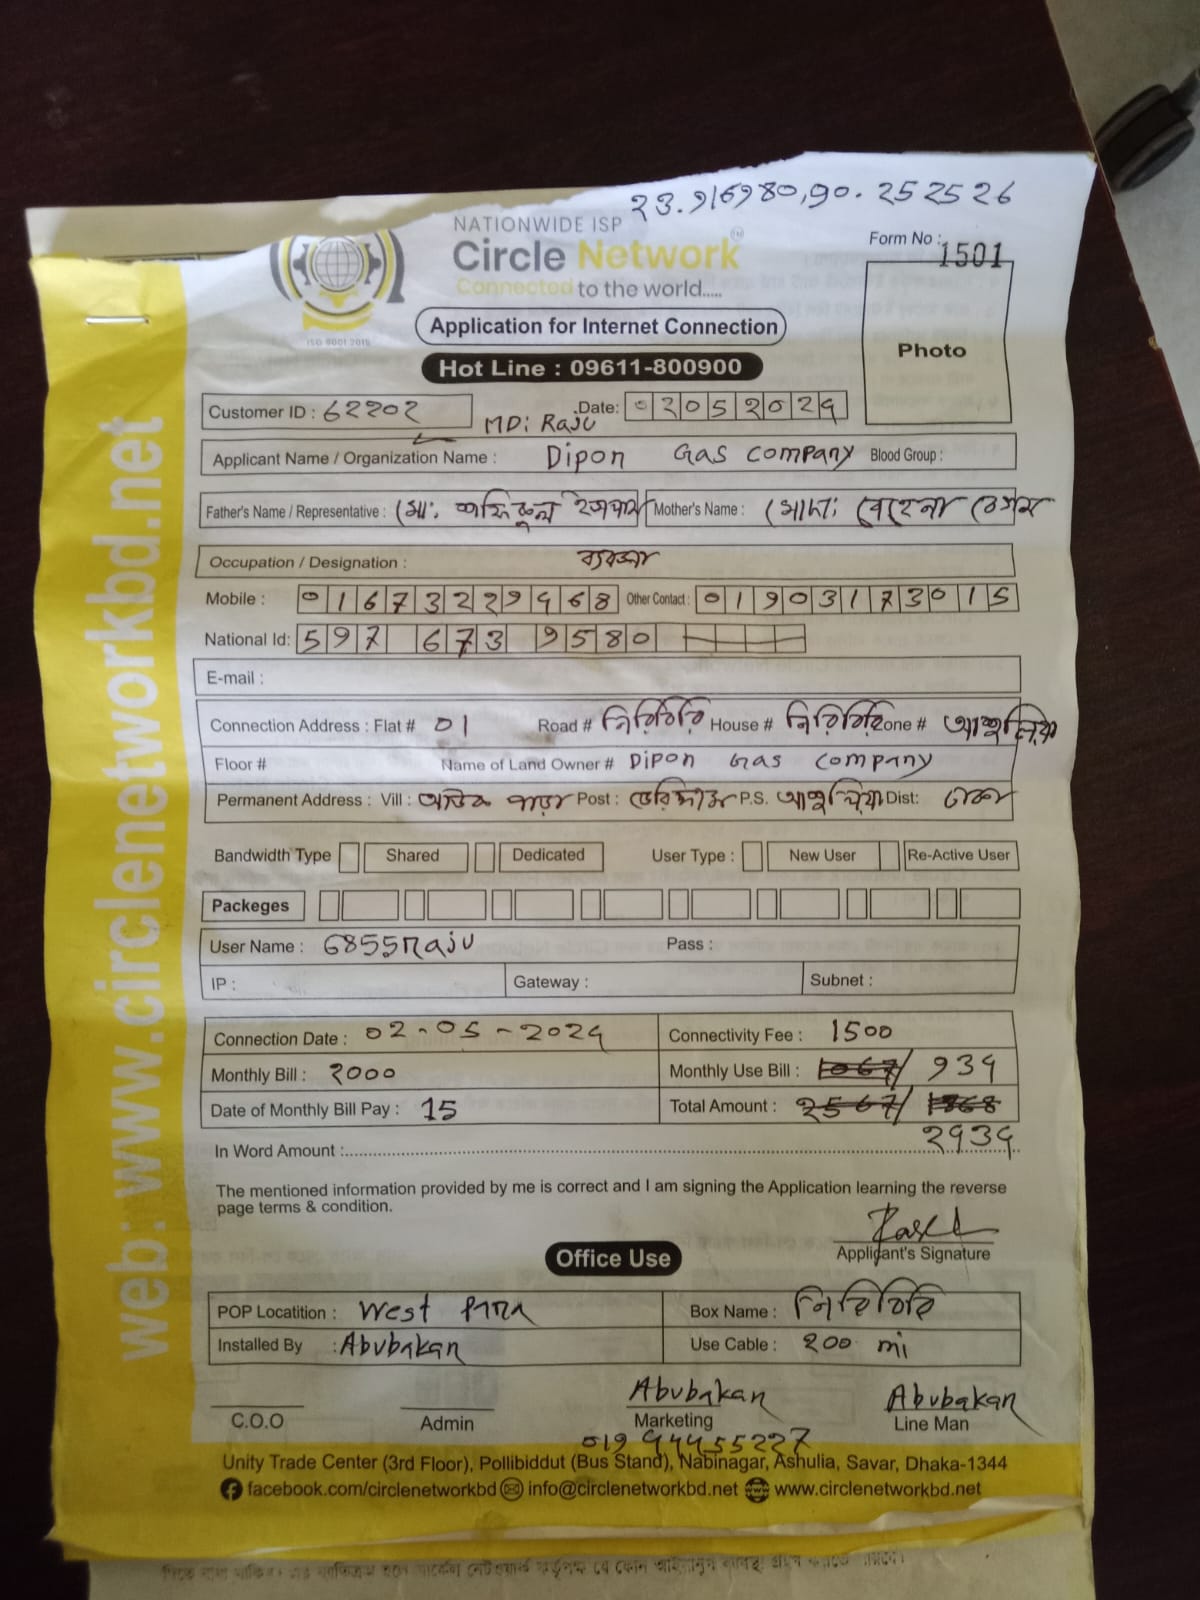 23.916980,90.252526
NATIONWIDE ISP
Circle Network
Connected to the world.....
Form No : 1501
Photo
ISO 9001:2015
Application for Internet Connection
Hot Line : 09611-800900
Customer ID : 62202 Date: 02052024
MD: Raju
Applicant Name / Organization Name : Dipon Gas company Blood Group :
Father's Name / Representative : মো: শফিকুল ইসলাম Mother's Name : মোসা: রেহেনা বেগম
Occupation / Designation : ব্যবসা
Mobile : 01673229468 Other Contact : 01903173015
National Id: 597 673 9580
E-mail :
Connection Address : Flat # 01 Road # নিরিবিলি House # নিরিবিলি Zone # আশুলিয়া
Floor # Name of Land Owner # Dipon Gas company
Permanent Address : Vill : পাড়া Post : P.S. আশুলিয়া Dist: ঢাকা
Bandwidth Type Shared Dedicated User Type : New User Re-Active User
Packeges
User Name : 6855Raju Pass :
IP : Gateway : Subnet :
Connection Date : 02-05-2024 Connectivity Fee : 1500
Monthly Bill : 2000 Monthly Use Bill : 1067/ 934
Date of Monthly Bill Pay : 15 Total Amount : 2567/ 1868
2434
In Word Amount :
The mentioned information provided by me is correct and I am signing the Application learning the reverse
page terms & condition.
Applicant's Signature
Office Use
POP Locatition : West para Box Name : নিরিবিলি
Installed By : Abubakar Use Cable : 200 mi
Abubakar Abubakar
C.O.O Admin Marketing Line Man
01944455227
Unity Trade Center (3rd Floor), Pollibiddut (Bus Stand), Nabinagar, Ashulia, Savar, Dhaka-1344
facebook.com/circlenetworkbd info@circlenetworkbd.net www.circlenetworkbd.net
web: www.circlenetworkbd.net